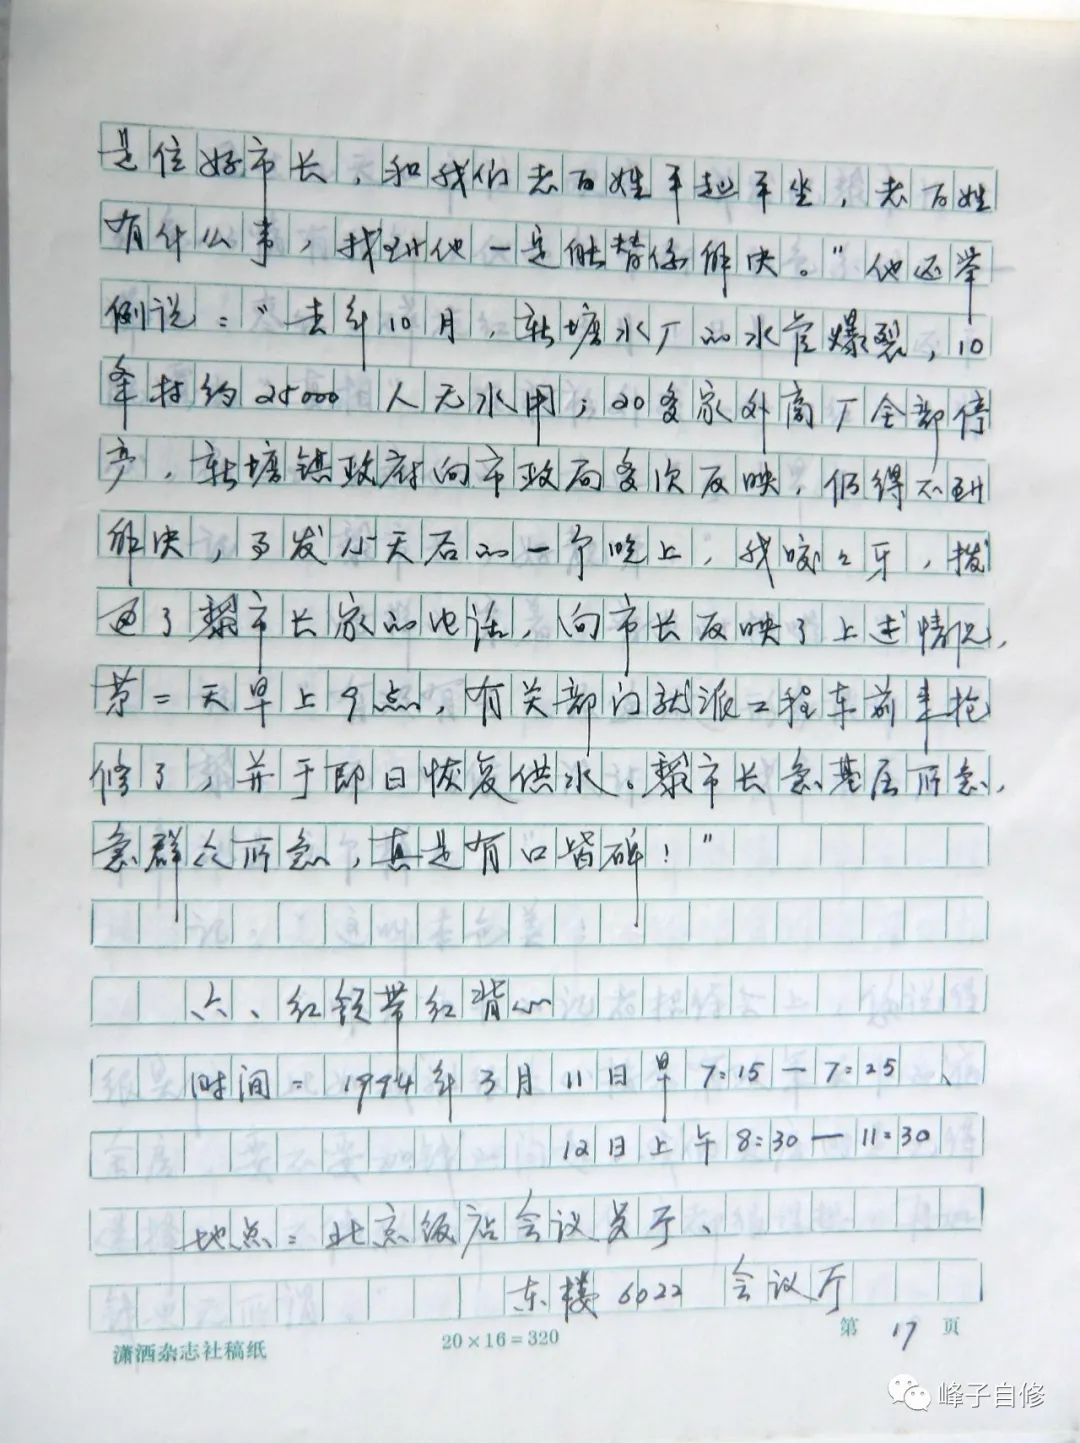 是位好市长，和我们老百姓平起平坐，老百姓
有什么事，找到他一定能替你解决。”他还举
例说：“去年10月，新塘水厂的水管爆裂，10
条村约25000人无水用；20多家外商厂全部停
产，新塘镇政府向市政局多次反映，仍得不到
解决，事发八天后的一个晚上，我咬咬牙，拨
通了黎市长家的电话，向市长反映了上述情况，
第二天早上9点，有关部门就派工程车前来抢
修了，并于即日恢复供水。黎市长急基层所急，
急群众所急，真是有口皆碑！”
六、红领带红背心
时间：1994年3月11日早7:15—7:25、
12日上午8:30—11:30
地点：北京饭店会议员厅、
东楼6022 会议厅
潇洒杂志社稿纸 20×16=320 第17页
峰子自修